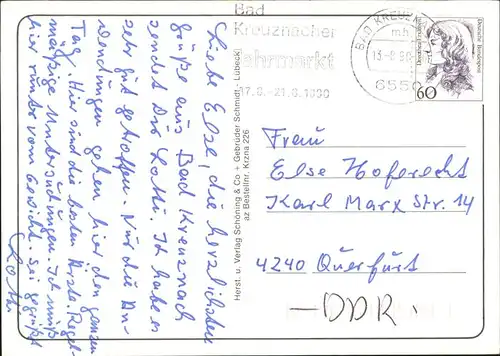 Liebe Else, die herzlichsten
Grüße aus Bad Kreuznach
sendet Dir Lotti. Ich habe es
sehr gut getroffen. Nur die An-
wendungen gehen hier den ganzen
Tag. Hier sind die besten Ärzte. Regel-
mäßige Untersuchungen. Ich muß
hier runter vom Gewicht. Sei gegrüßt
Lotti
Herst. u. Verlag Schöning & Co + Gebrüder Schmidt - Lübeck
az Bestellnr. Krzna 226
Bad
Kreuznacher
Jahrmarkt
17.8.-21.8.1990
BAD KREUZNACH
mh
13-8.90
6550
Deutsche Bundespost
60
Frau
Else Hoferecht
Karl Marx Str. 14
4240 Querfurt
-DDR-